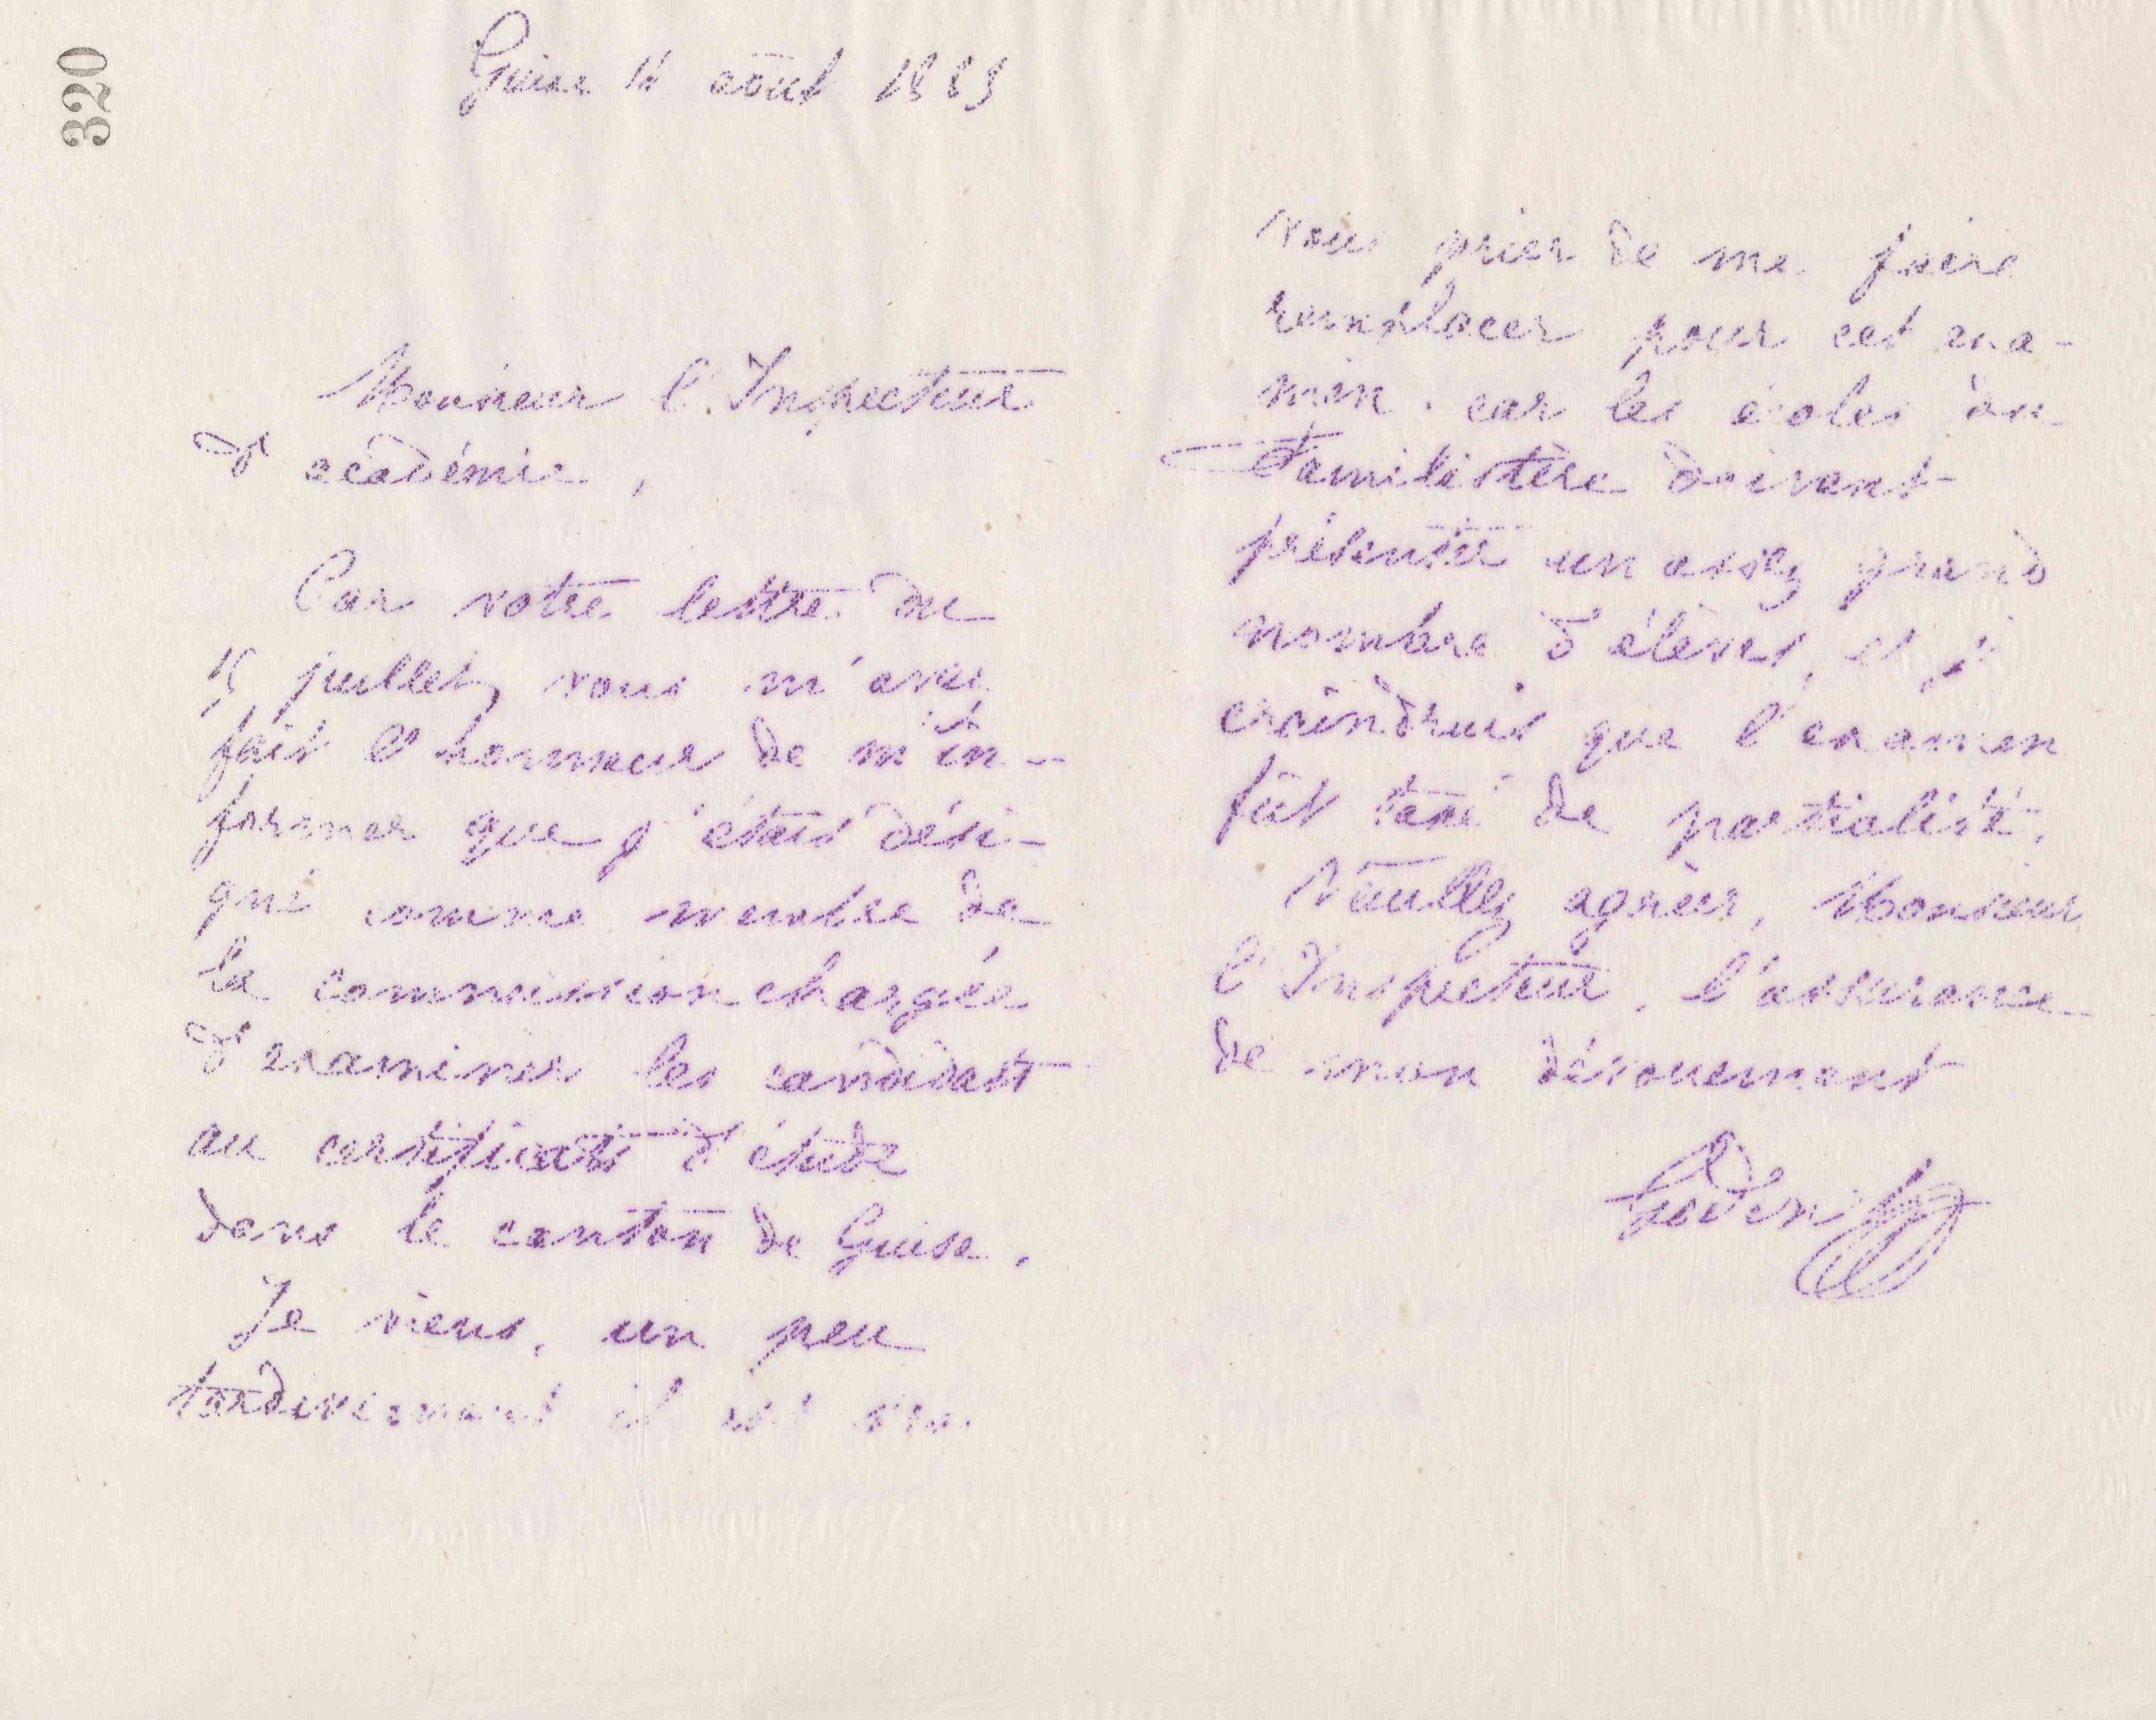 320
Guise 11 août 1883
Monsieur l'Inspecteur
d'académie,
Par votre lettre du
15 juillet, vous m'avez
fait l'honneur de m'in-
former que j'étais dési-
gné comme membre de
la commission chargée
d'examiner les candidats
au certificat d'étude
dans le canton de Guise.
Je viens, un peu
tardivement il est vrai
vous prier de me faire
remplacer pour cet exa-
men, car les écoles du
Familistère doivent
présenter un assez grand
nombre d'élèves, et je
craindrais que l'examen
fût taxé de partialité.
Veuillez agréer, Monsieur
l'Inspecteur, l'assurance
de mon dévouement
Godin